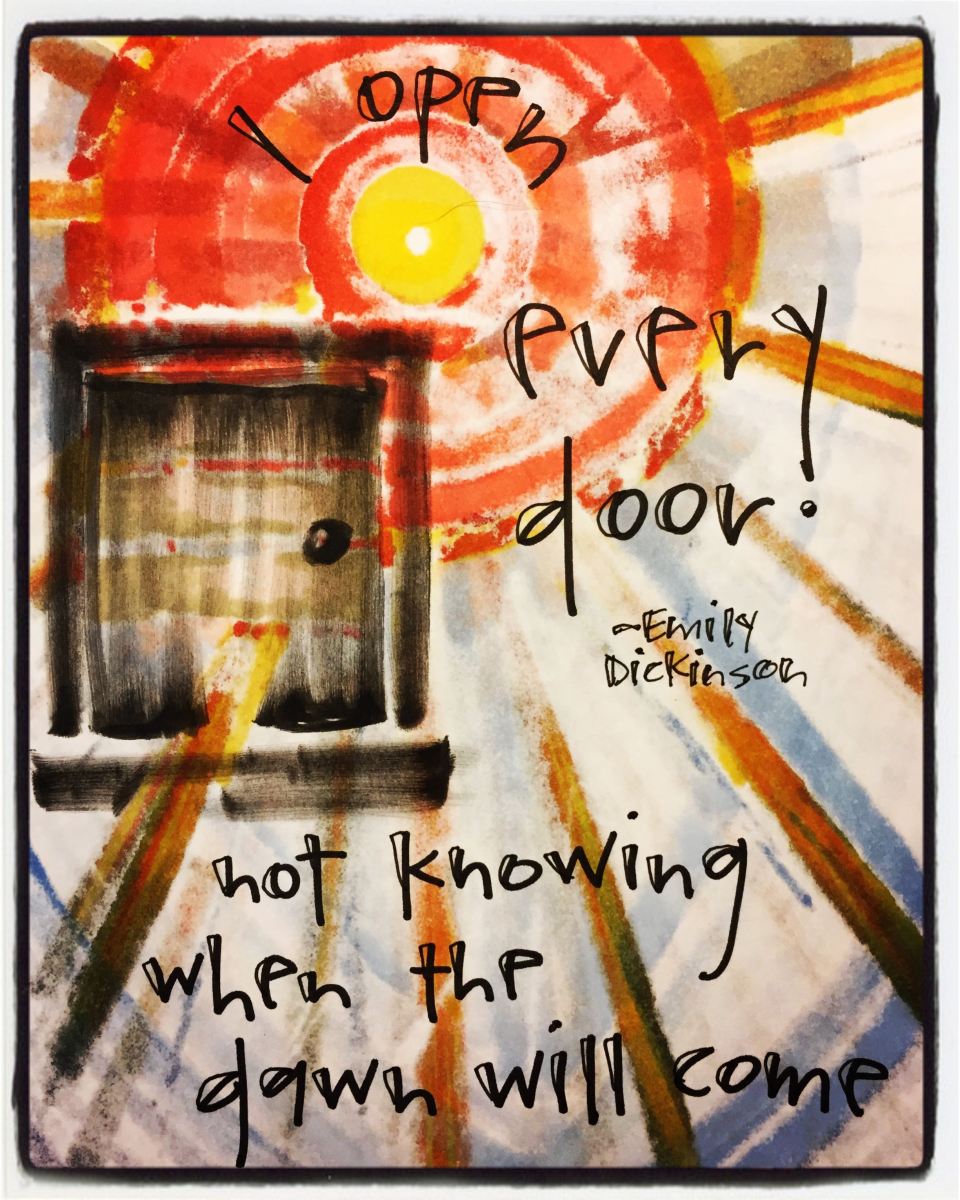 I open
every
door.
~Emily
Dickinson
not knowing
when the
dawn will come